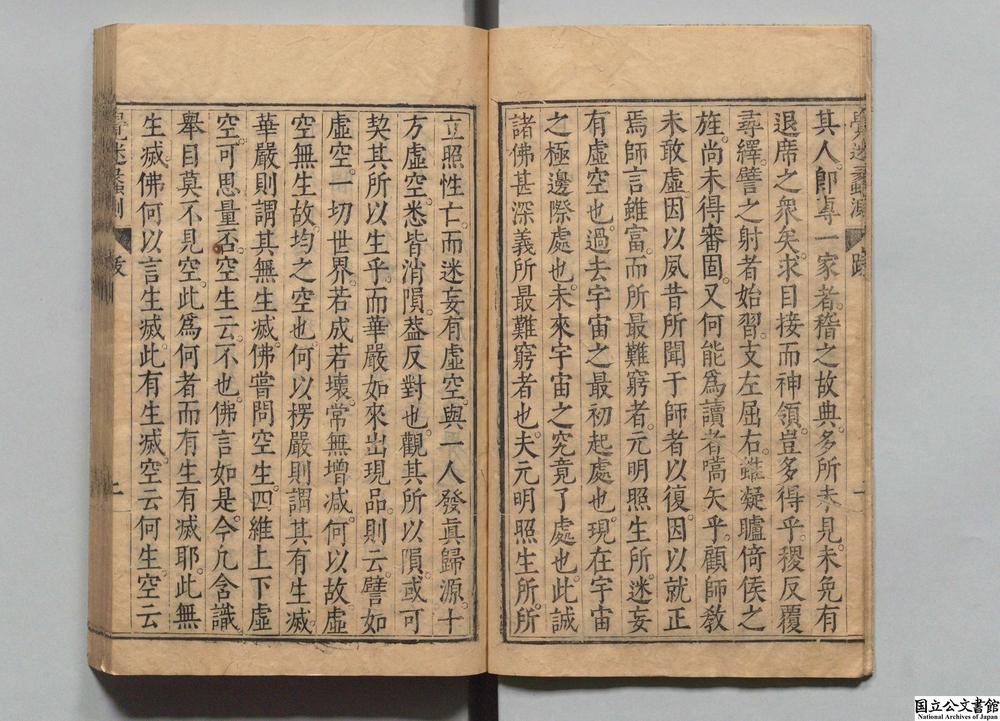 其人卽專一家者稽之故典多所未見未免有
退席之衆矣求目接而神領豈多得乎稷反覆
尋繹譬之射者始習支左屈右雖凝臚倚侯之
旌尚未得審固又何能爲讀者嚆矢乎顧師敎
未敢虛因以夙昔所聞于師者以復因以就正
焉師言雖富而所最難窮者元明照生所迷妄
有虛空也過去宇宙之最初起處也現在宇宙
之極邊際處也未來宇宙之究竟了處也此誠
諸佛甚深義所最難窮者也夫元明照生所所
立照性亡而迷妄有虛空與一人發眞歸源十
方虛空悉皆消隕葢反對也觀其所以隕或可
契其所以生乎而華嚴如來出現品則云譬如
虛空一切世界若成若壞常無增減何以故虛
空無生故均之空也何以楞嚴則謂其有生滅
華嚴則謂其無生滅佛嘗問空生四維上下虛
空可思量否空生云不也佛言如是今凢含識
舉目莫不見空此爲何者而有生有滅耶此無
生滅佛何以言生滅此有生滅空云何生空云
国立公文書館
National Archives of Japan